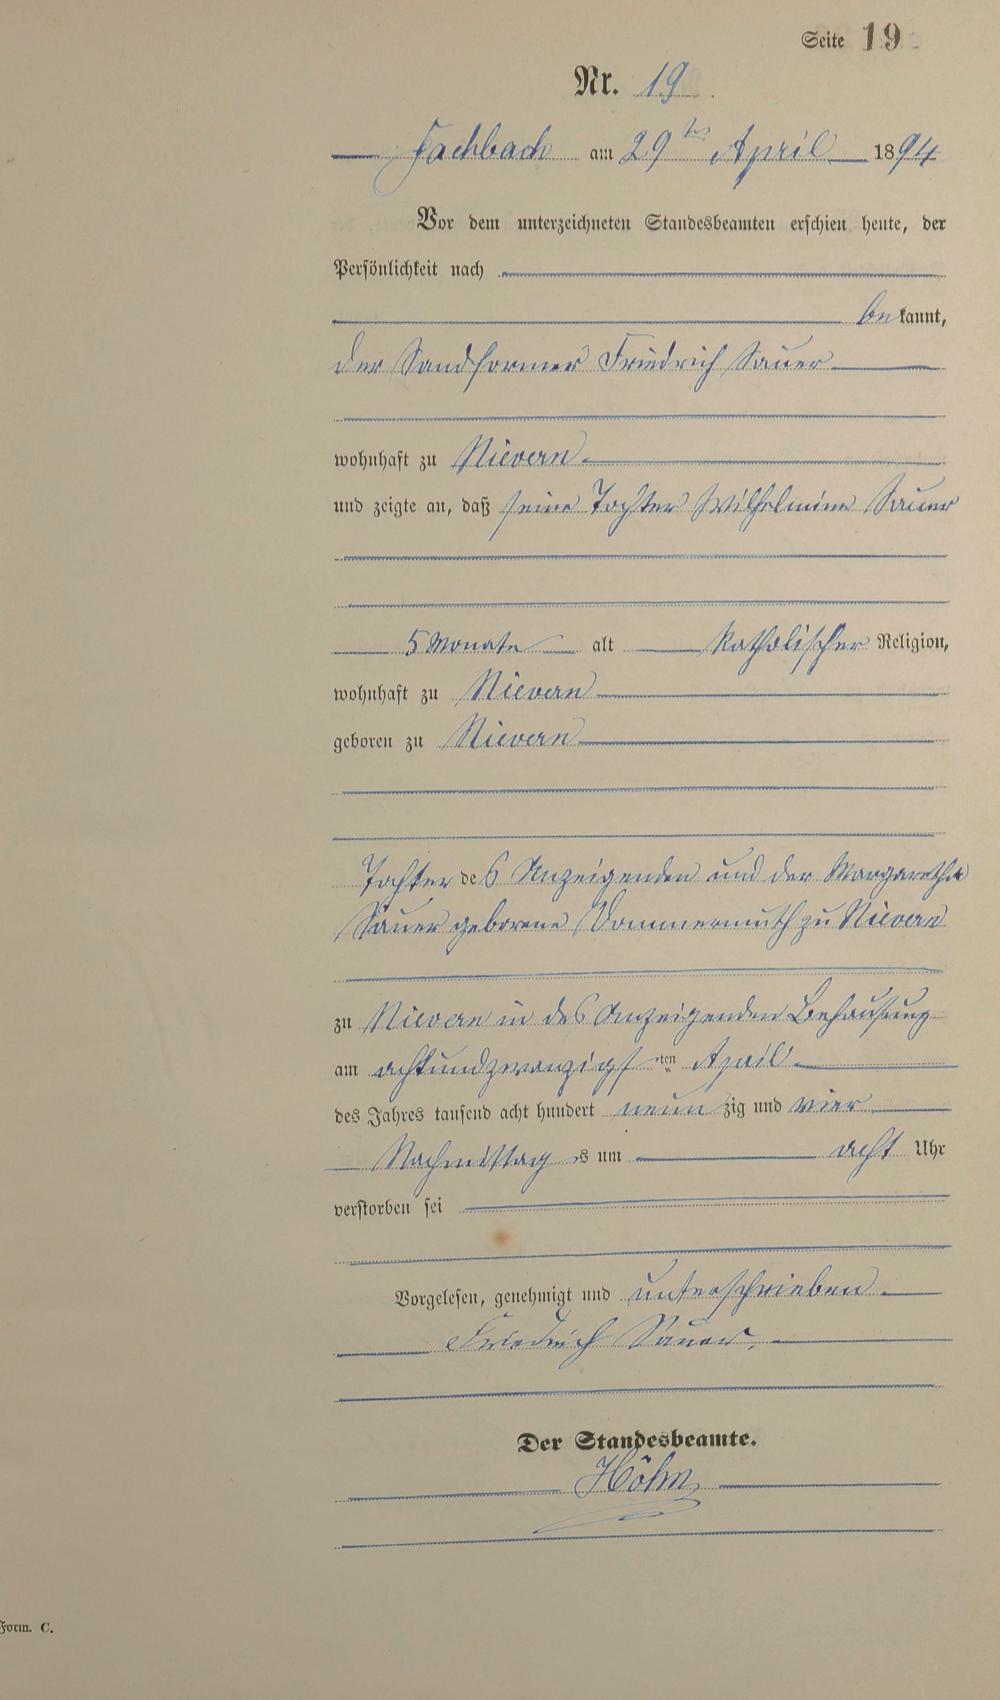 Seite 19
Nr. 19.
Fachbach am 29ten April 1894
Vor dem unterzeichneten Standesbeamten erschien heute, der
Persönlichkeit nach
bekannt,
der Sandformer Friedrich Sauer
wohnhaft zu Nievern
und zeigte an, daß seine Tochter Wilhelmine Sauer
5 Monate alt katholischer Religion,
wohnhaft zu Nievern
geboren zu Nievern
Tochter des Anzeigenden und der Margaretha
Sauer geborene Dommermuth zu Nievern
zu Nievern in des Anzeigenden Behausung
am achtundzwanzigsten April
des Jahres tausend acht hundert neunzig und vier
Nachmittags um acht Uhr
verstorben sei
Vorgelesen, genehmigt und unterschrieben.
Friedrich Sauer.
Der Standesbeamte.
Höhn
Form. C.